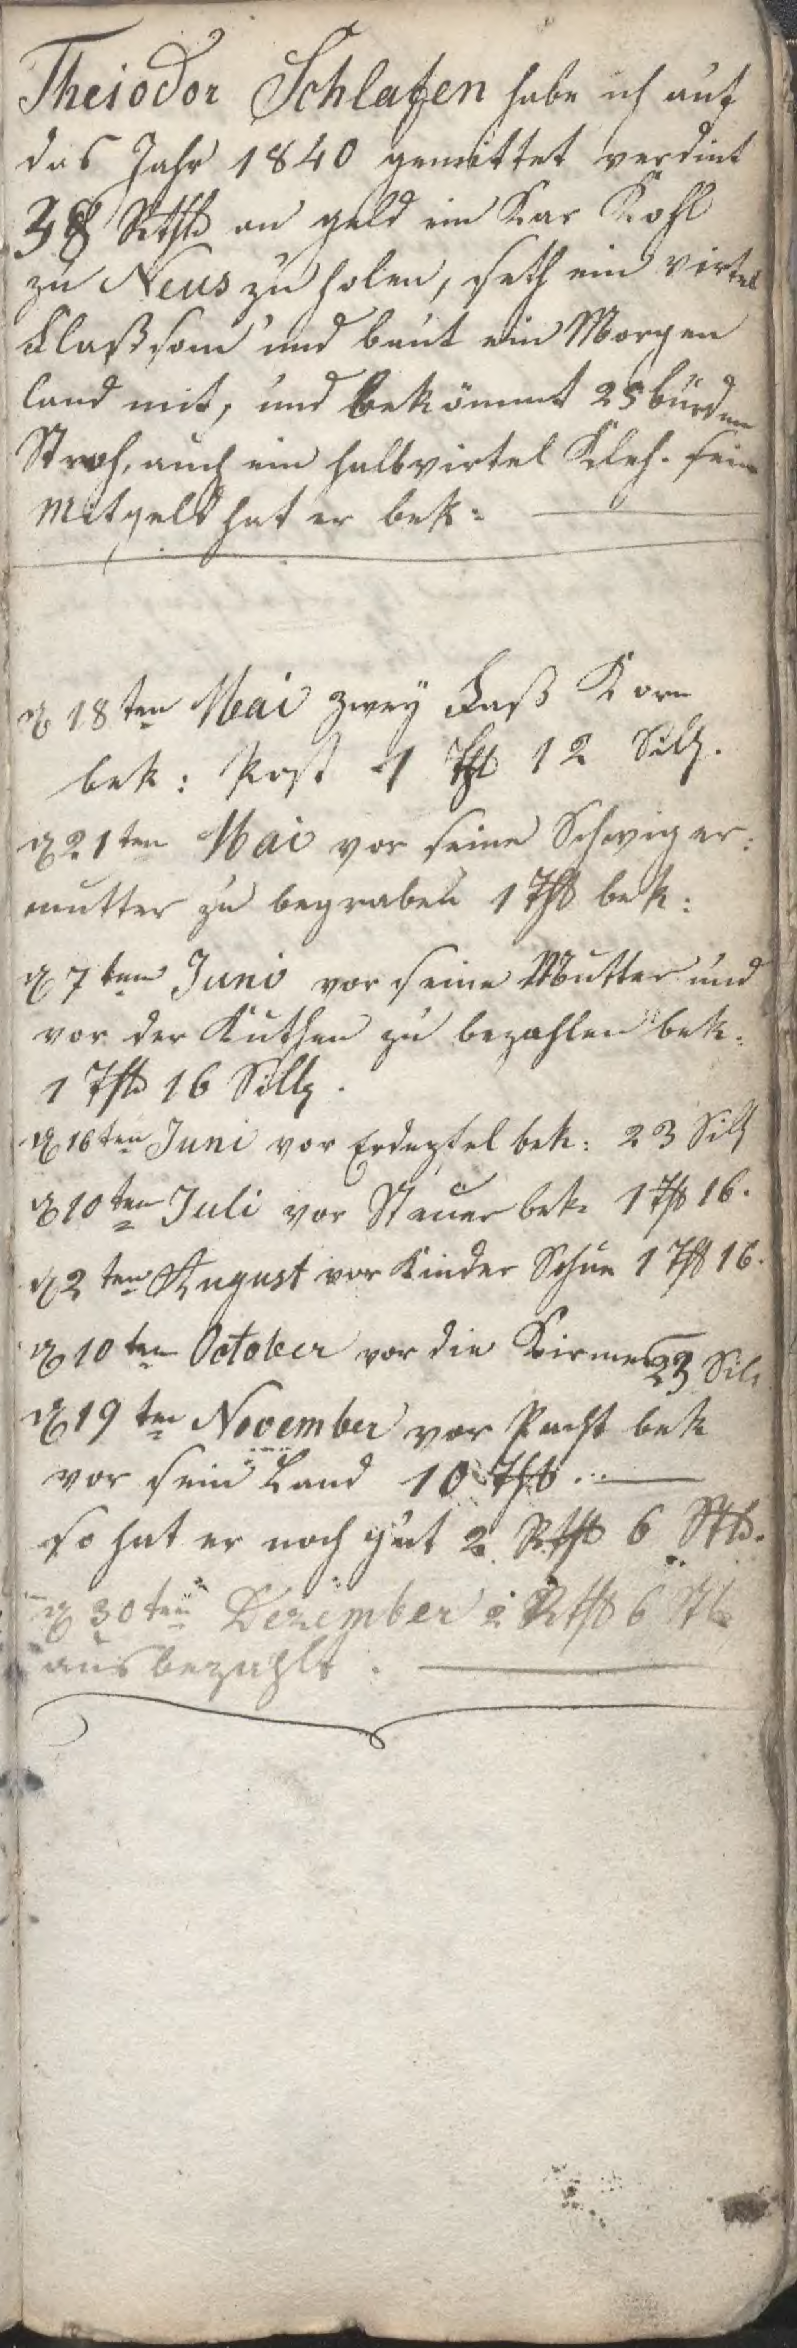 Theiodor Schlafen habe ich auf
das Jahr 1840 gemittet verdint
38 Rthlr an geld ein Kar Kohl
zu Neus zu holen, seth ein virtel
Flaßsom und baut ein Morgen
land mit, und bekömmt 25 bürden
Stroh, auch ein halbvirtel Kleh. sein
Mitgeld hat er bek:
d 18ten Mai zwey Faß Korn
bek: kost 1 Thl 12 Silg.
d 21ten Mai vor seine Schwiger:
mutter zu begraben 1 Thl bek:
d 7ten Juni vor seine Mutter und
vor der zu bezahlen bek:
1 Thl 16 Sillg.
d 16ten Juni vor Erdepfel bek: 23 Silg
d 10ten Juli vor Steuer bek. 1 Thl 16.
d 2ten August vor Kinder Schue 1 Thl 16.
d 10ten October vor die Kirmes 23 Sil
d 19ten November vor Pacht bek
vor sein Land 10 Thl
so hat er noch gut 2 Rthl 6 Stb.
d 30ten Dezember 2 Rthl 6 Stb
ausbezahlt.